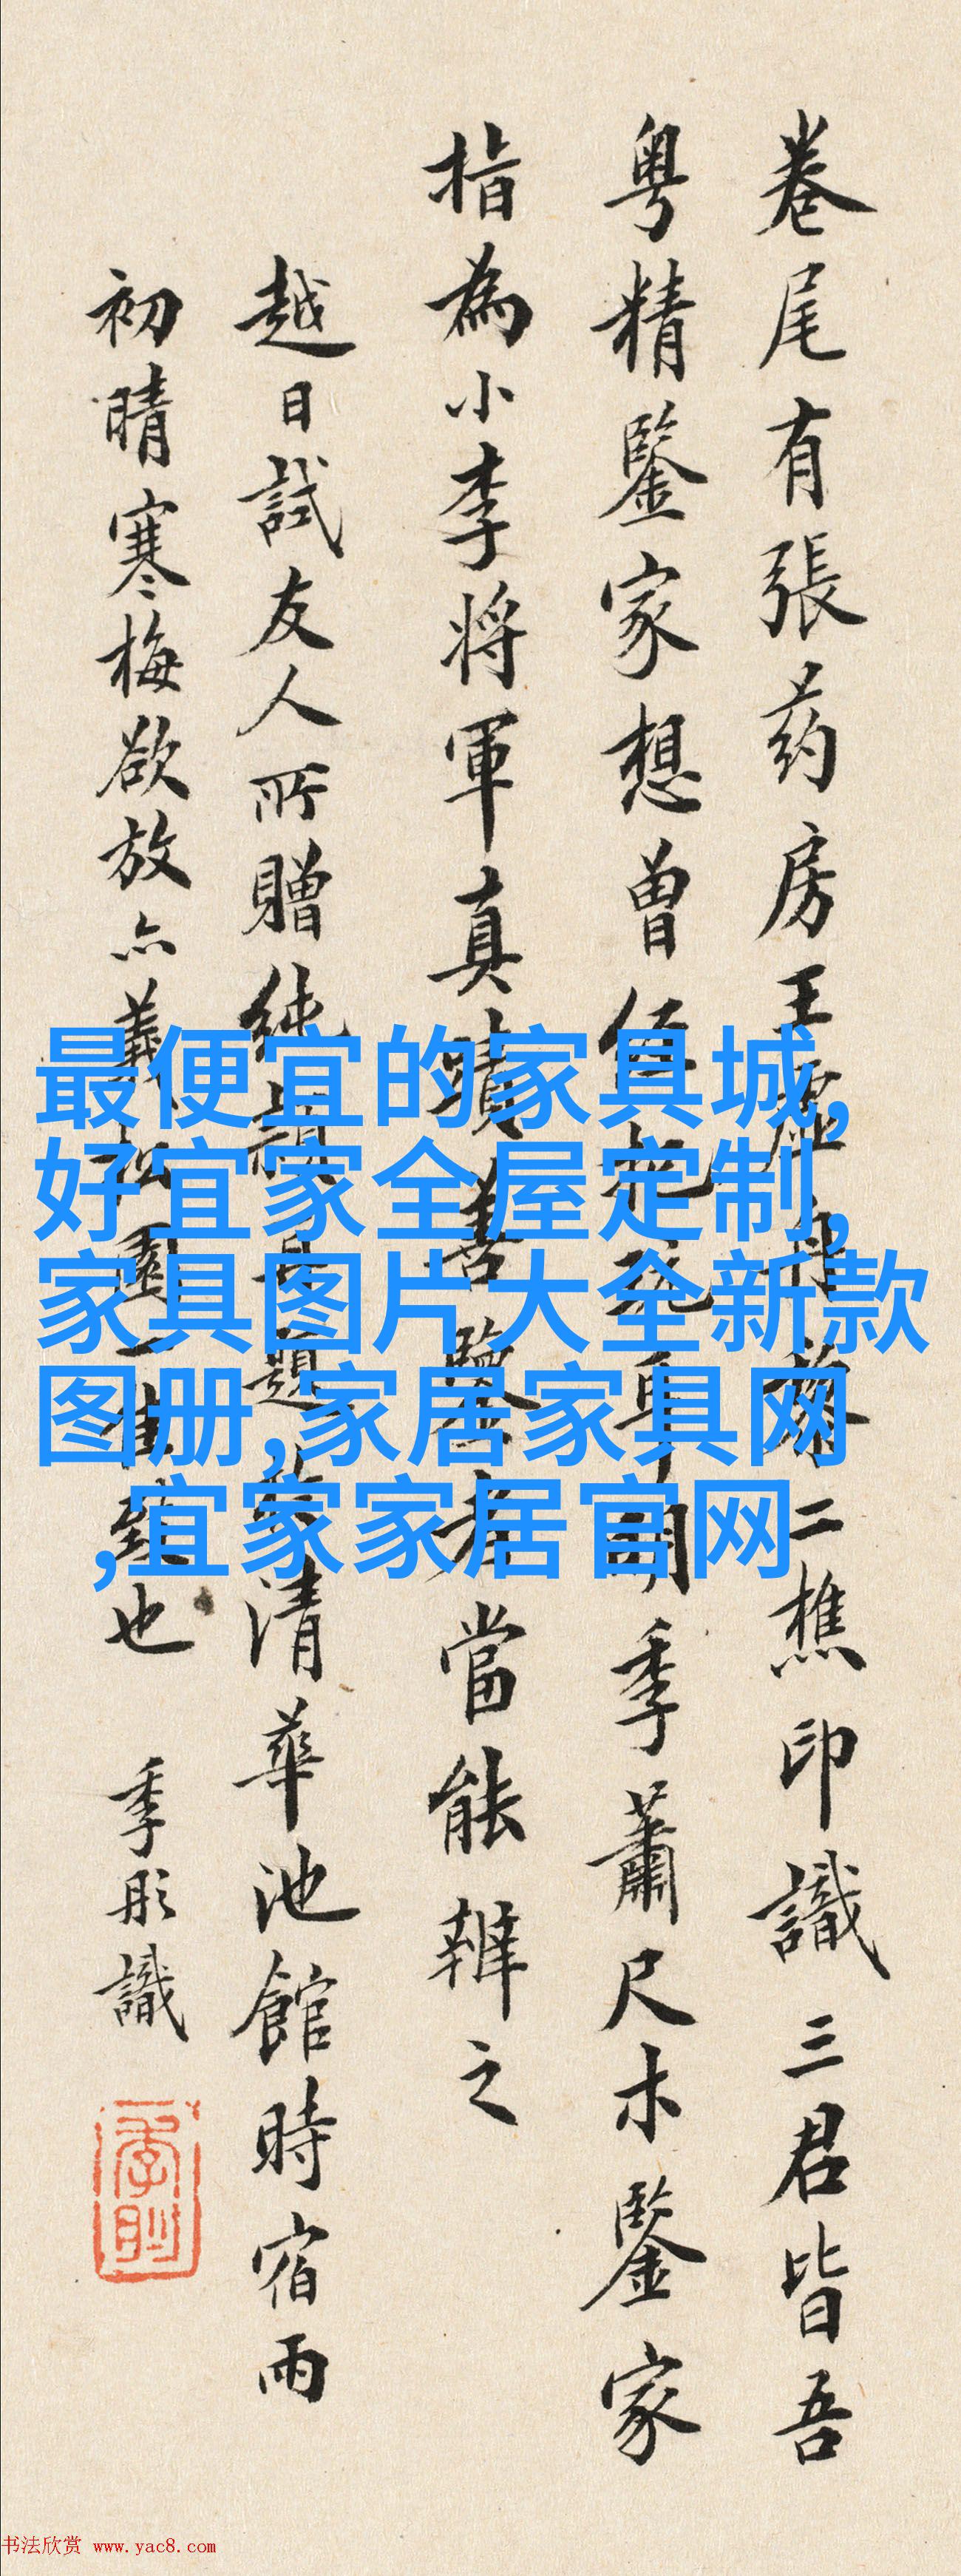 卷尾有張药房王虚舟蔣二樵印識三君皆吾
粤精鑒家想曾任明季蕭尺木鑒家
指為小李將軍真蹟善鑒者當能辨之
越日試友人所贈純題清華池館時宿雨
初晴寒梅欲放亦義園一佳致也
季彤識
最便宜的家具城,
好宜家全屋定制,
家具图片大全新款
图册,家居家具网
,宜家家居官网
书法欣赏 www.yac8.com